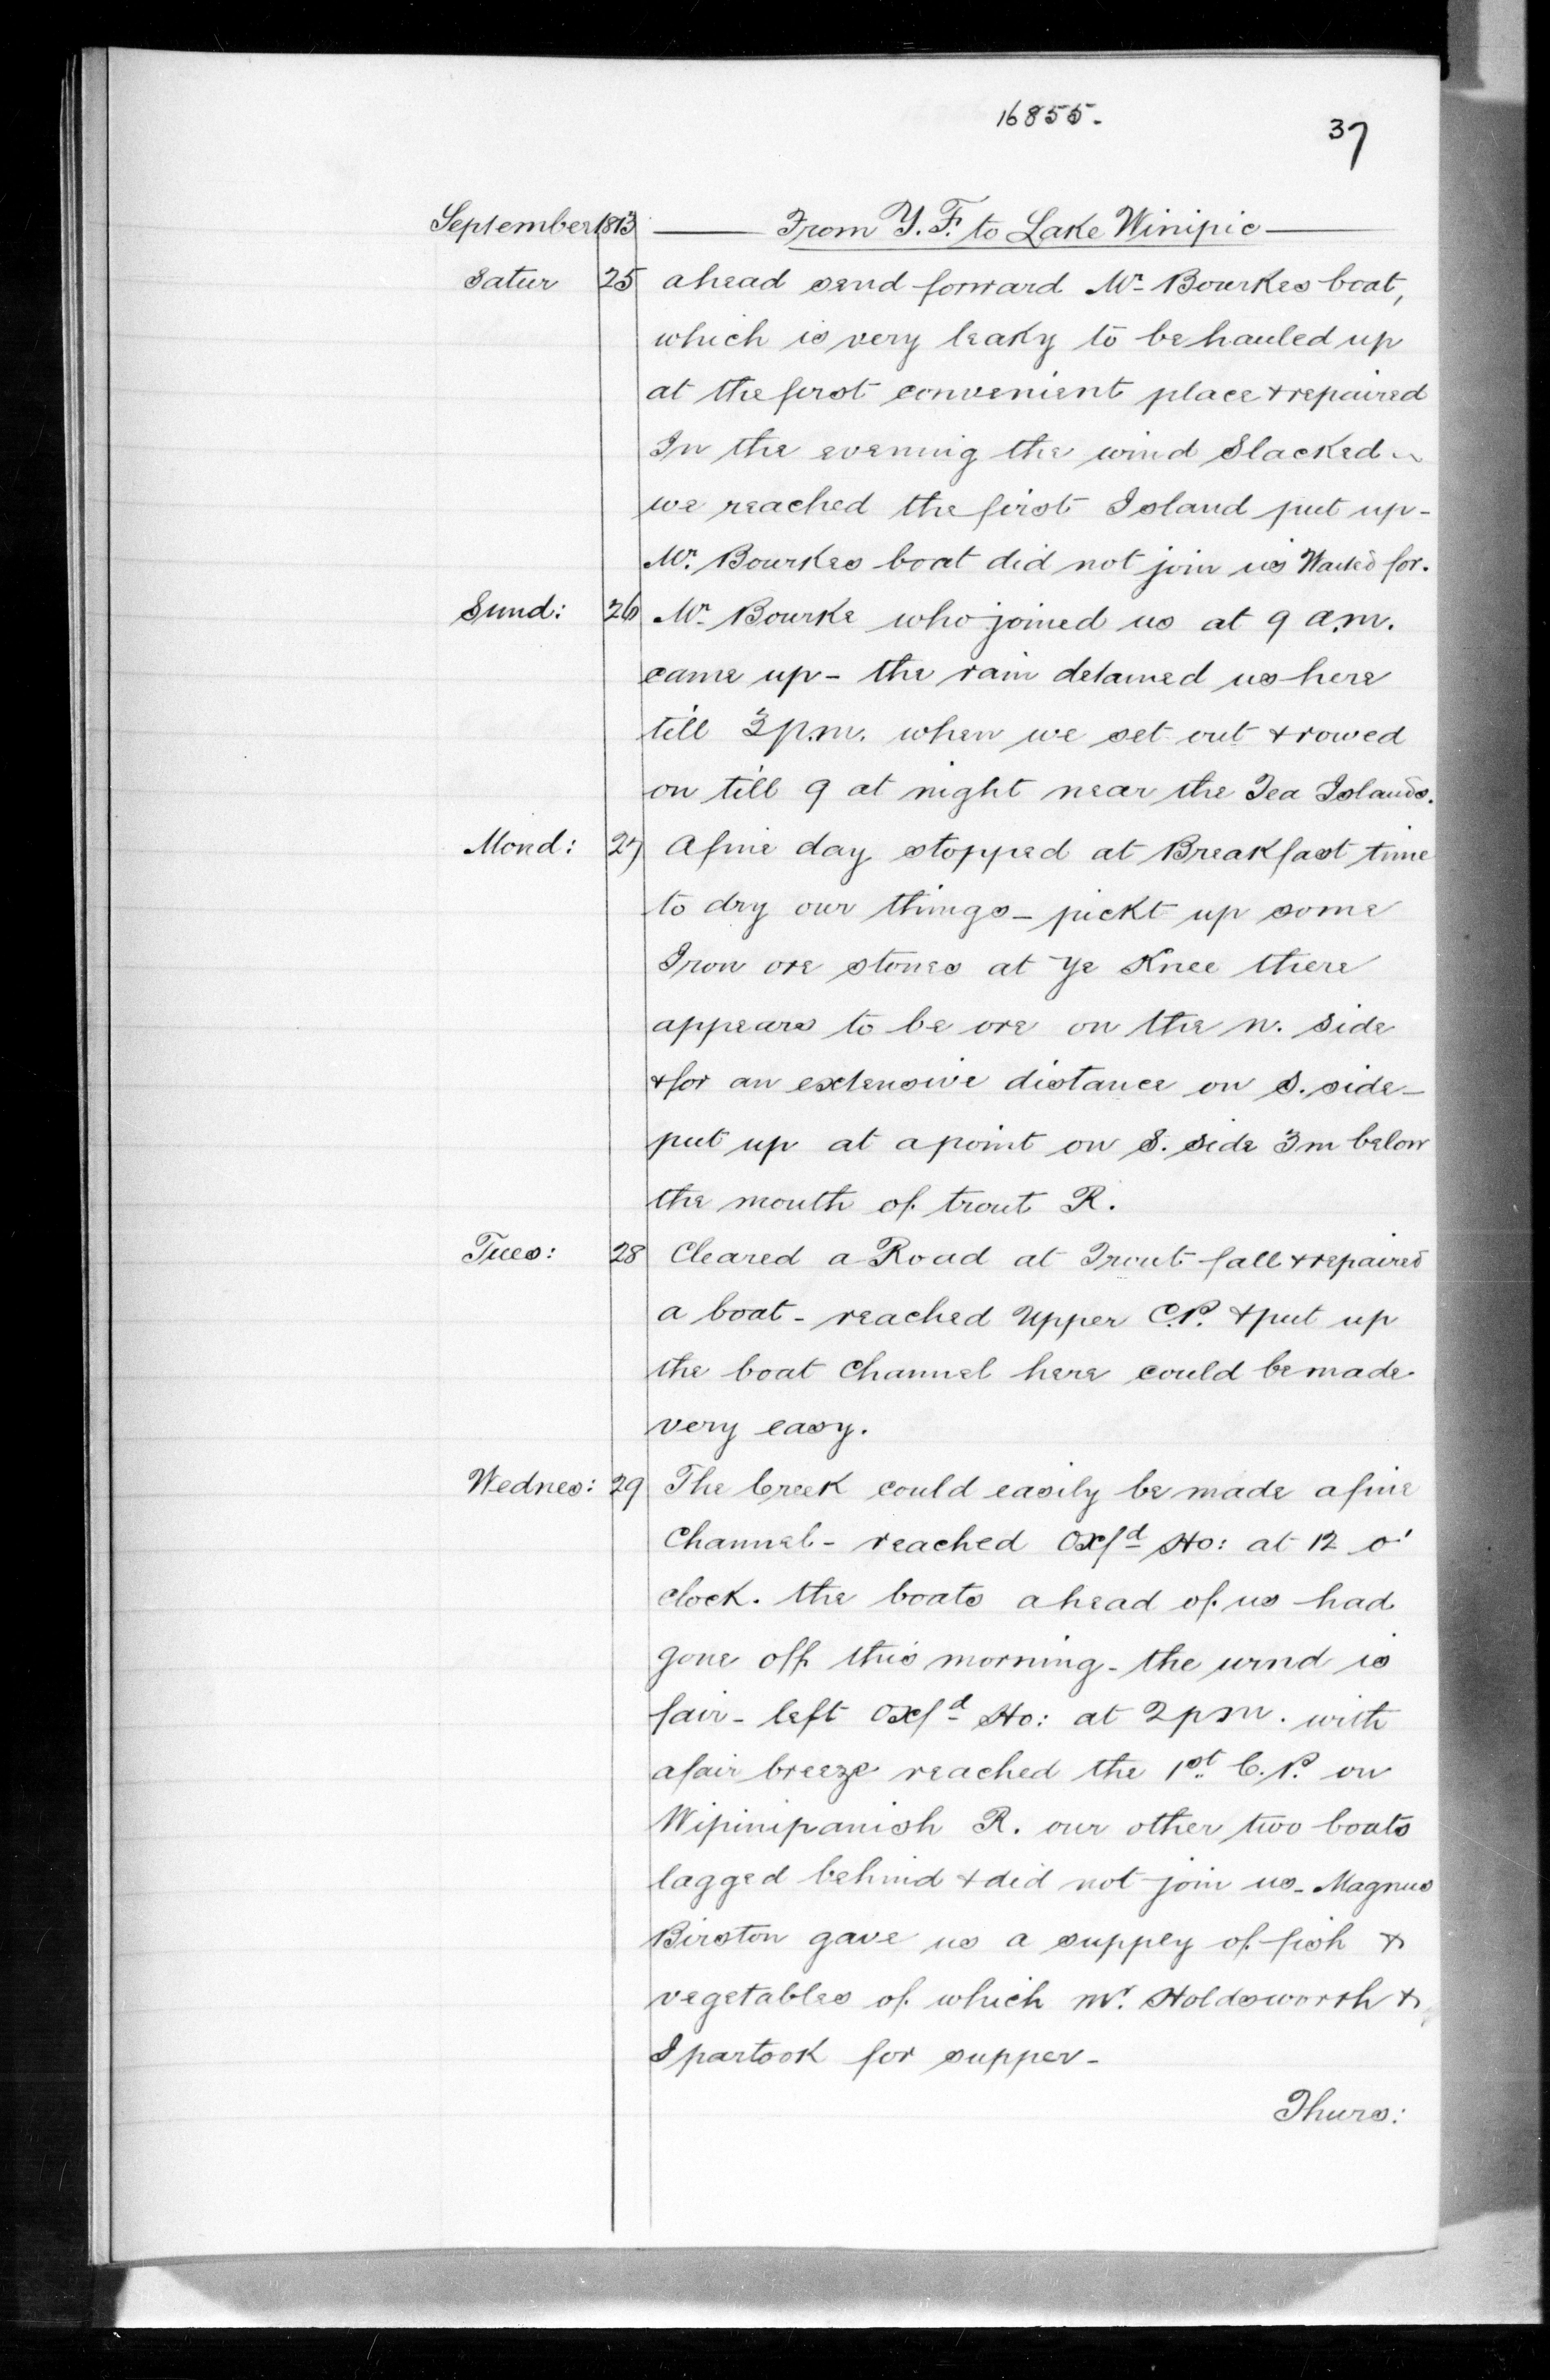 16855.
37
September 1813 — From Y.F. to Lake Winipic —
Satur 25 ahead send forward Mr. Bourkes boat,
which is very leaky to be hauled up
at the first convenient place & repaired
In the evening the wind Slacked ~
we reached the first Island put up -
Mr. Bourkes boat did not join us Waited for.
Sund: 26 Mr. Bourke who joined us at 9 a.m.
came up - the rain detained us here
till 3 p.m. when we set out & rowed
on till 9 at night near the Tea Islands.
Mond: 27 A fine day stopped at Breakfast time
to dry our things - pickt up some
Iron ore stones at Ye Knee there
appears to be ore on the n. side
& for an extensive distance on S. side -
put up at a point on S. side 3 m below
the mouth of trout R.
Tues: 28 Cleared a Road at Trout fall & repaired
a boat - reached Upper C.P. & put up
the boat Channel here could be made
very easy.
Wednes: 29 The Creek could easily be made a fine
Channel - reached Oxfd Ho: at 12 o'
clock. the boats ahead of us had
gone off this morning - the wind is
fair - left Oxfd Ho: at 2 p m. with
a fair breeze reached the 1st C.P. on
Wipinipanish R. our other two boats
lagged behind & did not join us - Magnus
Birston gave us a suppey of fish &
vegetables of which Mr. Holdsworth &
I partook for supper -
Thurs: